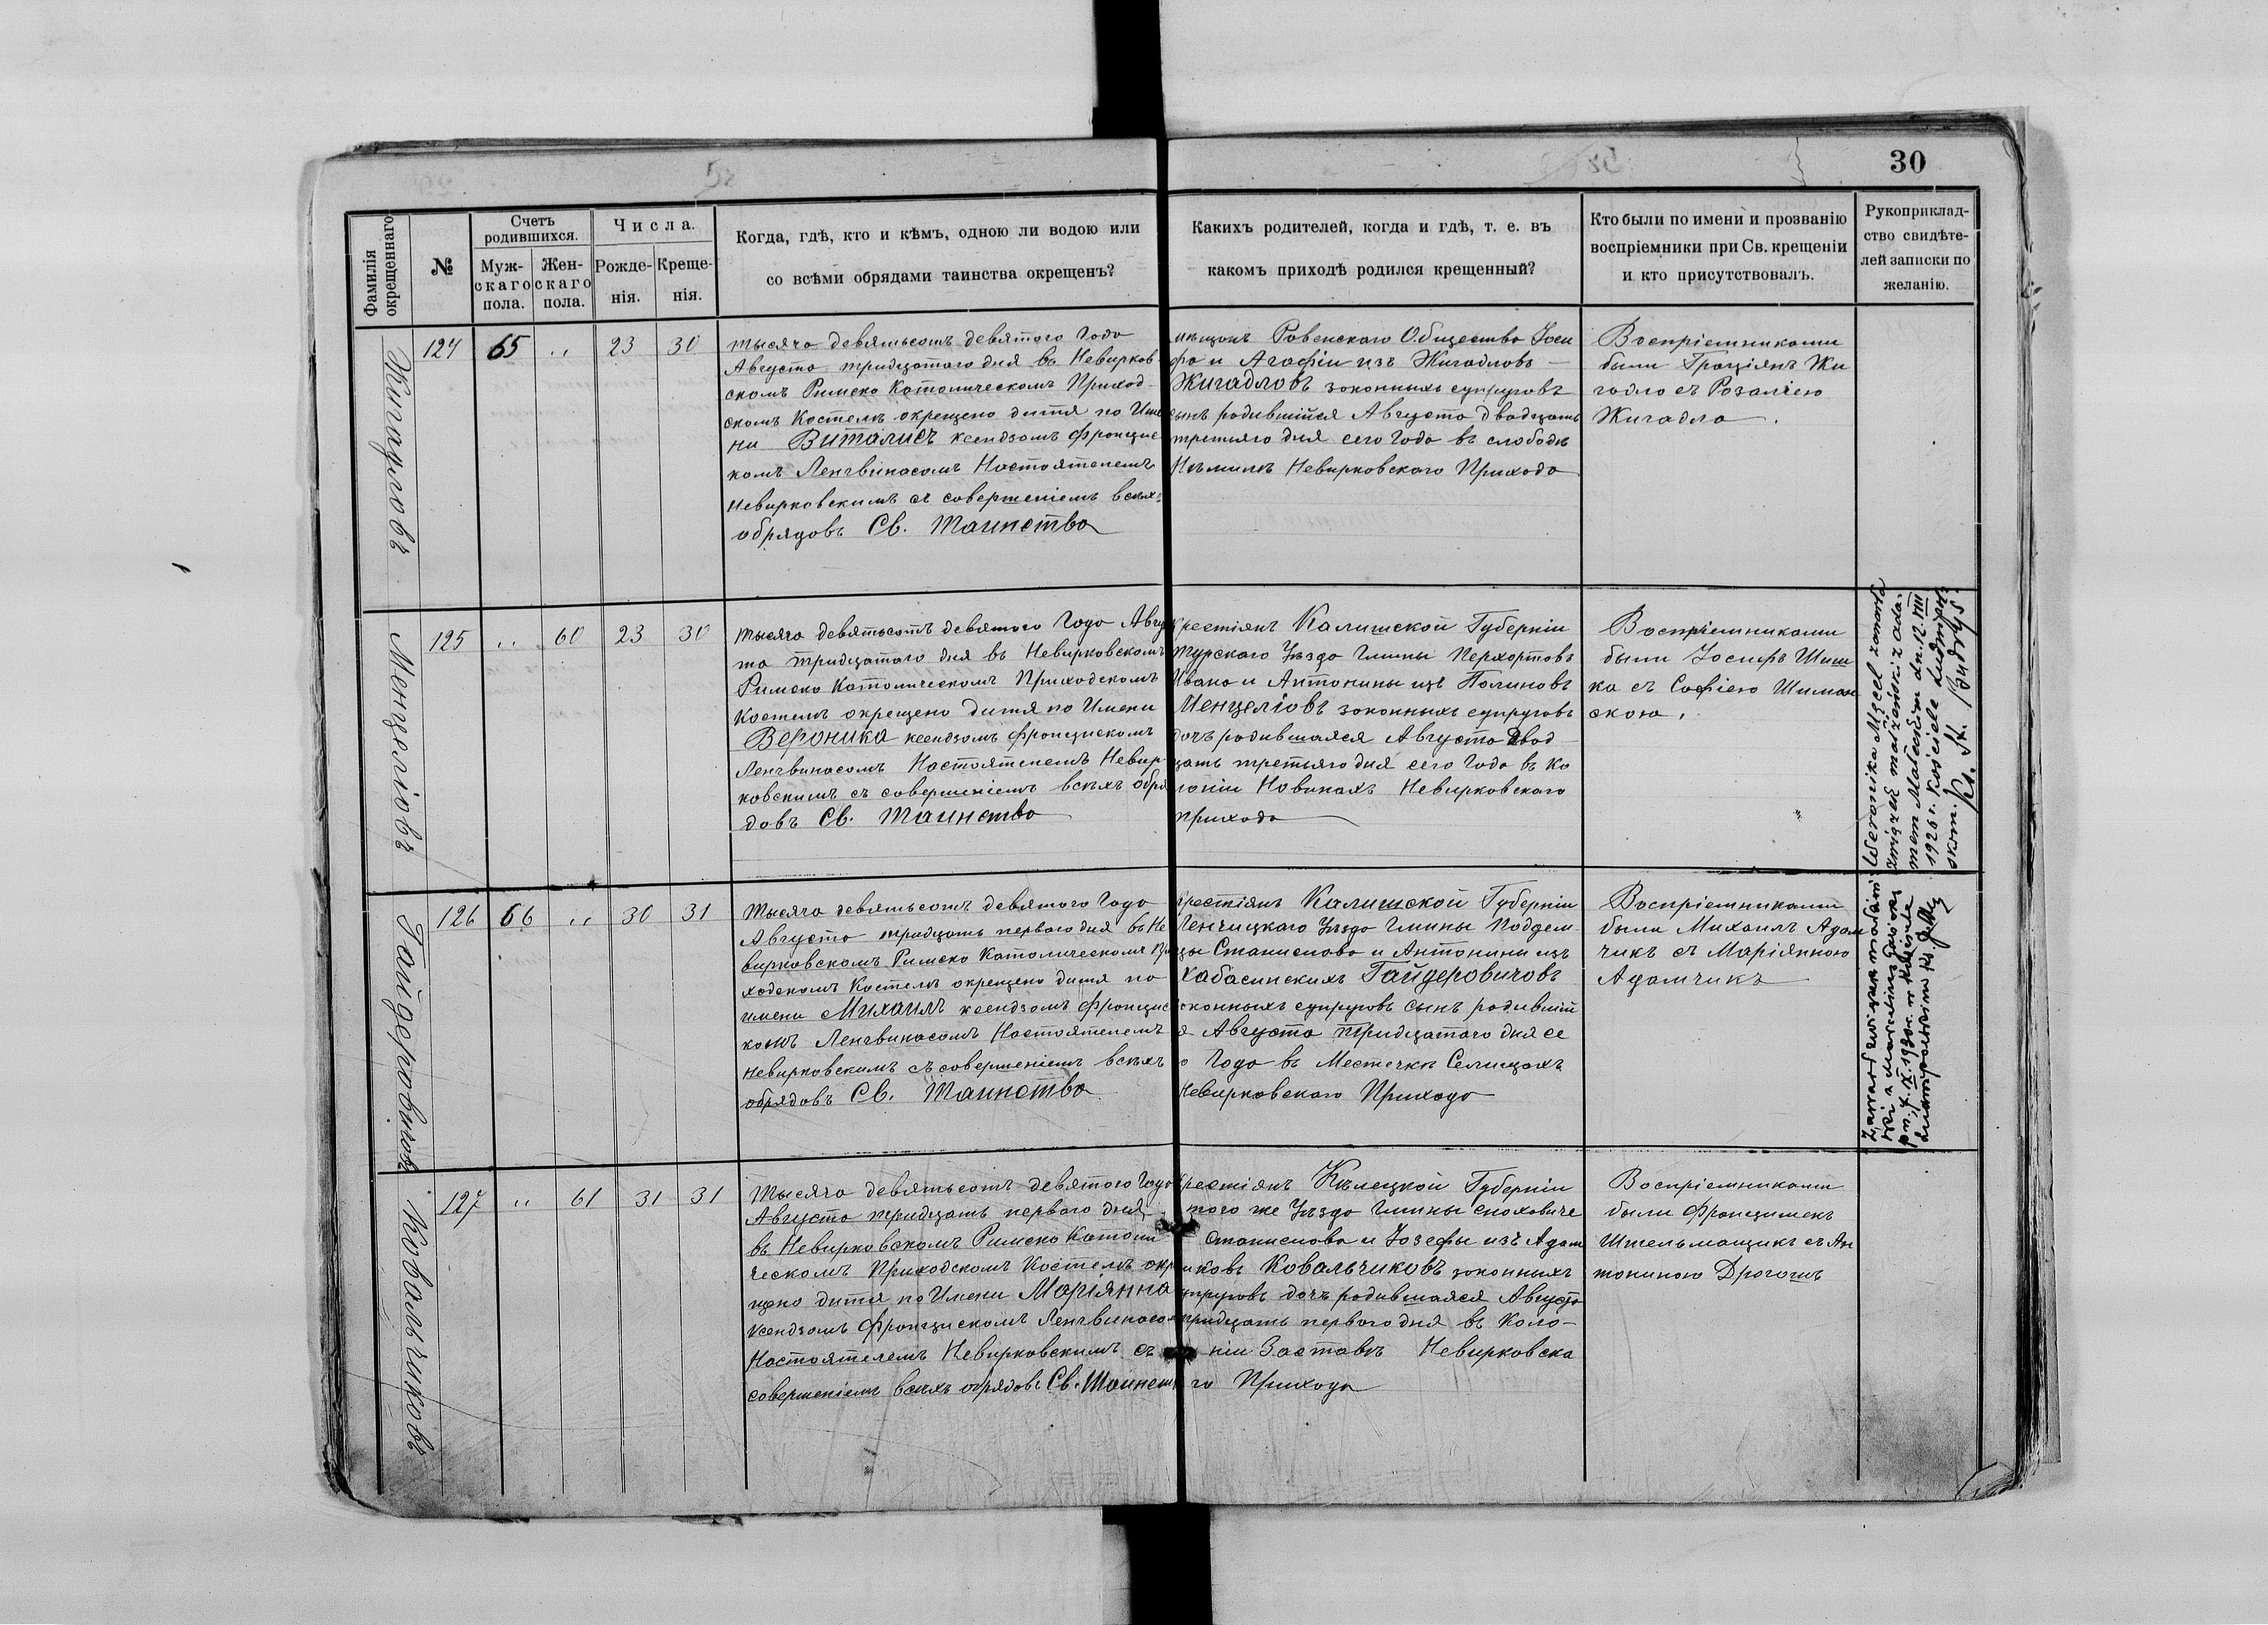 30
Фамилія окрещеннаго
№
Счетъ родившихся.
Мужскаго пола.
Женскаго пола.
Числа.
Рожденія.
Крещенія.
Когда, гдѣ, кто и кѣмъ, одною ли водою или
со всѣми обрядами таинства окрещенъ?
Какихъ родителей, когда и гдѣ, т. е. въ
какомъ приходѣ родился крещенный?
Кто были по имени и прозванію
воспріемники при Св. крещеніи
и кто присутствовалъ.
Рукоприклад-
ство свидѣте-
лей записки по
желанію.
Жигадловъ
124 65 " 23 30
Тысяча девятьсотъ девятого Года
Августа тридцатого дня въ Невирков
скомъ Римско Католическомъ Приход-
скомъ Костелѣ окрещено дитя по Име
ни Виталисъ ксендзомъ Францис
комъ Ленгвинасомъ Настоятелемъ
Невирковскимъ съ совершеніемъ всѣхъ
обрядовъ Св. Таинства
мѣщанъ Ровенскаго Общества Іоси
фа и Агафіи изъ Жигадловъ —
Жигадловъ законныхъ супруговъ
сынъ родившійся Августа двадцать
третьяго дня сего Года въ слободѣ
Невирковского Прихода
Воспріемниками
были Граціянъ Жи
гадло съ Розаліею
Жигадло.
Менцеліовъ
125 " 60 23 30
Тысяча девятьсотъ девятого Года Авгу
та тридцатого дня въ Невирковскомъ
Римско Католическомъ Приходскомъ
Костелѣ окрещено дитя по Имени
Вероника ксендзомъ Францискомъ
Ленгвинасомъ Настоятелемъ Невир-
ковскимъ съ совершеніемъ всѣхъ обря
довъ Св. Таинства
Крестіянъ Калишской Губерніи
Турскаго Уѣзда Гмины
Ивана и Антонины изъ Полиновъ
Менцеліовъ законныхъ супруговъ
дочь родившаяся Августа двад
цать третьяго дня сего Года въ Ко
лоніи Новинахъ Невирковского
Прихода
Воспріемниками
были Іосифъ Шиш
ка съ Софіею Шиман
скою.
Weronika Męcel zawarła
związek małżeński z Ada-
mem Małeckim dn. 12.VIII
1926 r. Kościele Ludwipol-
skim. Ks. St. Budrys.
Гайдеровичовъ
126 66 " 30 31
Тысяча девятьсотъ девятого Года
Августа тридцать первого дня въ Не
вирковскомъ Римско Католическомъ При
ходскомъ Костелѣ окрещено дитя по
имени Михаилъ ксендзомъ Францис
комъ Ленгвинасомъ Настоятелемъ
Невирковскимъ съ совершеніемъ всѣхъ
обрядовъ Св. Таинства
Крестіянъ Калишской Губерніи
Ленчицкаго Уѣзда Гмины Поддем-
Станислава и Антонины изъ
Хабасинскихъ Гайдеровичовъ
законныхъ супруговъ сынъ родившій
я Августа Тридцатого дня се
о Года въ Местечкѣ Селищахъ
Невирковского Прихода
Воспріемниками
были Михаилъ Адам
чикъ съ Маріянною
Адамчикъ
Zawarł związek małżeń-
ski z Marcelina
dn. 7.IX.1930 r. w Kościele
Ludwipolskim Ks.
Ковальчиковъ
127 " 61 31 31
Тысяча девятьсотъ девятого Года
Августа тридцать первого дня
въ Невирковскомъ Римско Католи
ческомъ Приходскомъ Костелѣ окре
щено дитя по Имени Маріянна
Ксендзомъ Францискомъ Ленгвинасом
Настоятелемъ Невирковскимъ съ
совершеніемъ всѣхъ обрядовъ Св. Таинст
Крестіянъ Кѣлецкой Губерніи
того же Уѣзда Гмины
Станислава и Іозефы изъ Адам
иковъ Ковальчиковъ законныхъ
упруговъ дочь родившаяся Августа
тридцать первого дня въ Коло-
ніи Заставѣ Невирковска
го Прихода
Воспріемниками
были Францишекъ
Штельмащикъ съ Ан
тониною Дрогошъ